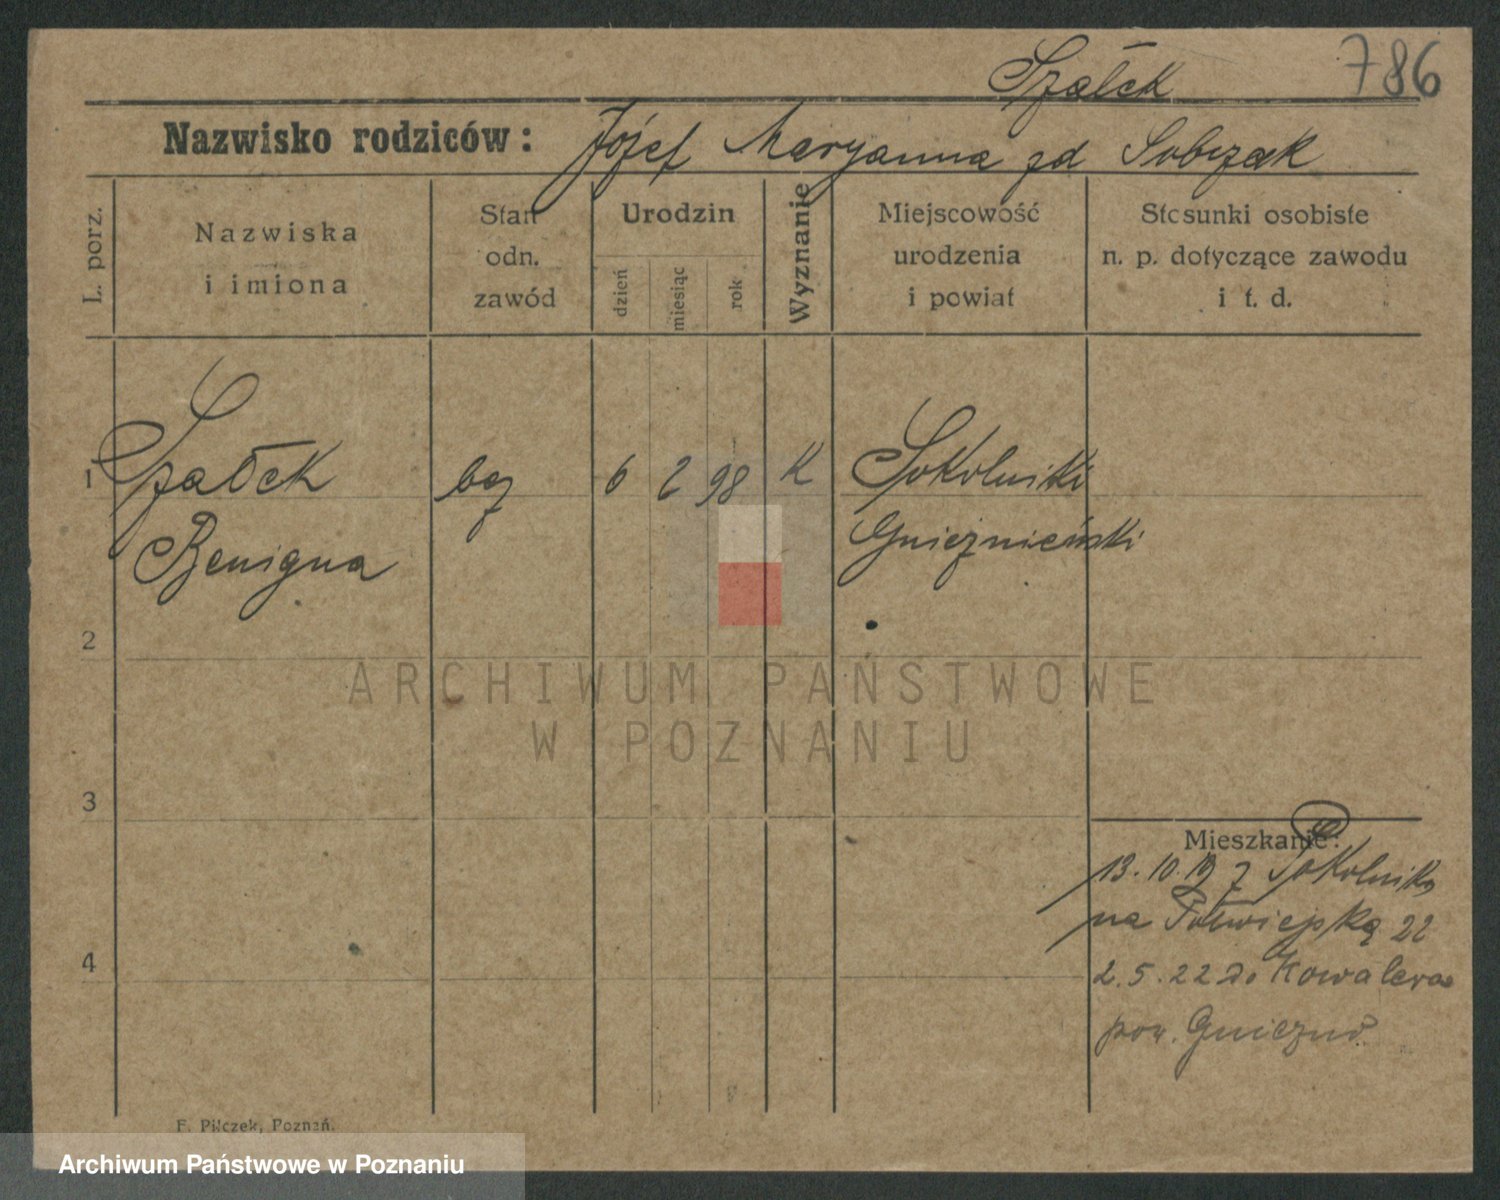 Szałek 786
Nazwisko rodziców: Józef Maryanna zd Sobczak
L. porz.
Nazwiska
i imiona
Stan
odn.
zawód
Urodzin
dzień
miesiąc
rok
Wyznanie
Miejscowość
urodzenia
i powiat
Stosunki osobiste
n. p. dotyczące zawodu
i t. d.
1 Szałek bez 6 2 98 K Sokolniki
Benigna Gnieznieński
2
3
4
Mieszkanie:
13.10.19 z Sokolnik
na Półwiejską 22
2.5.22 do Kowalewa
pow. Gniezno
F. Pilczek, Poznań.
ARCHIWUM PAŃSTWOWE
W POZNANIU
Archiwum Państwowe w Poznaniu